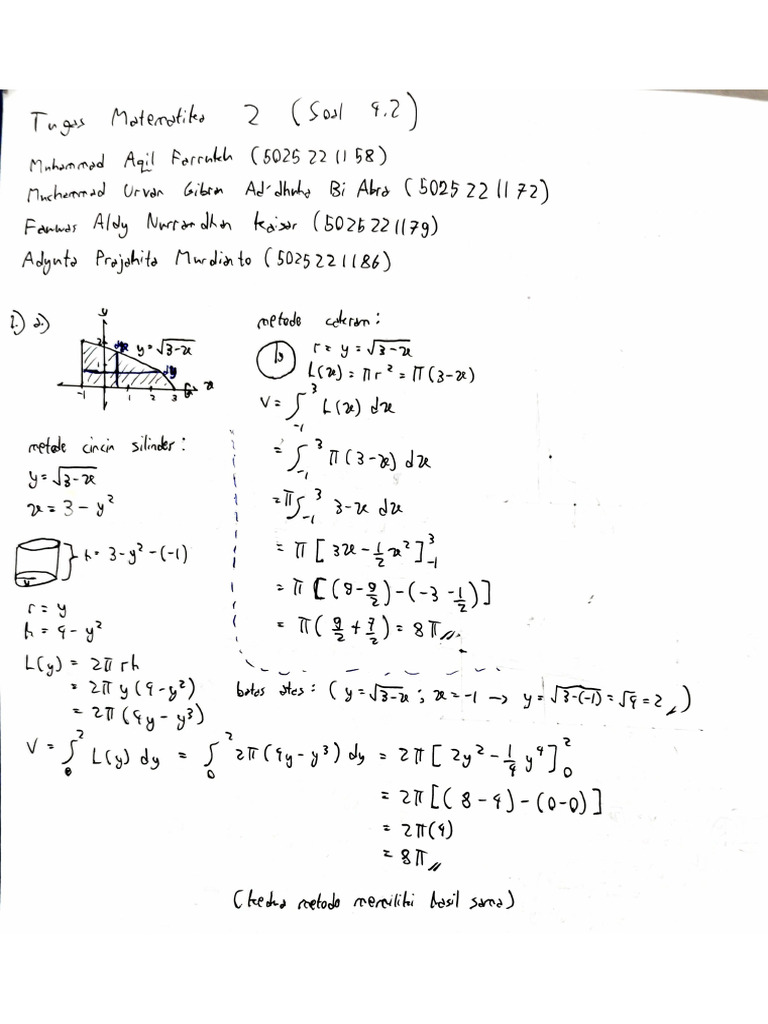 Tugas Matematika 2 (Soal 4.2)
Muhammad Aqil Farrukh (5025 22 11 58)
Muchammad Urvan Gibran Ad-dhuha Bi Abra (5025 22 11 72)
Aldy Nurramdhan Kaisar (5025221179)
Adyuta Prajahita Murdianto (5025221186)
1.) a.)
y
2
dx
y = √(3-x)
dy
1
-1 1 2 3 x
metode cakram:
r = y = √(3-x)
L(x) = πr² = π(3-x)
V = ∫₋₁³ L(x) dx
= ∫₋₁³ π(3-x) dx
= π∫₋₁³ 3-x dx
= π[3x - 1/2 x²]₋₁³
= π[(9 - 9/2) - (-3 - 1/2)]
= π(9/2 + 7/2) = 8π //
metode cincin silinder:
y = √(3-x)
x = 3 - y²
} h = 3-y²-(-1)
r = y
h = 4 - y²
L(y) = 2πrh
= 2πy(4-y²)
= 2π(4y-y³)
batas atas: (y = √(3-x) ; x = -1 → y = √(3-(-1)) = √4 = 2 //)
V = ∫₀² L(y) dy = ∫₀² 2π(4y-y³) dy = 2π[2y² - 1/4 y⁴]₀²
= 2π[(8-4)-(0-0)]
= 2π(4)
= 8π //
(kedua metode memiliki hasil sama)